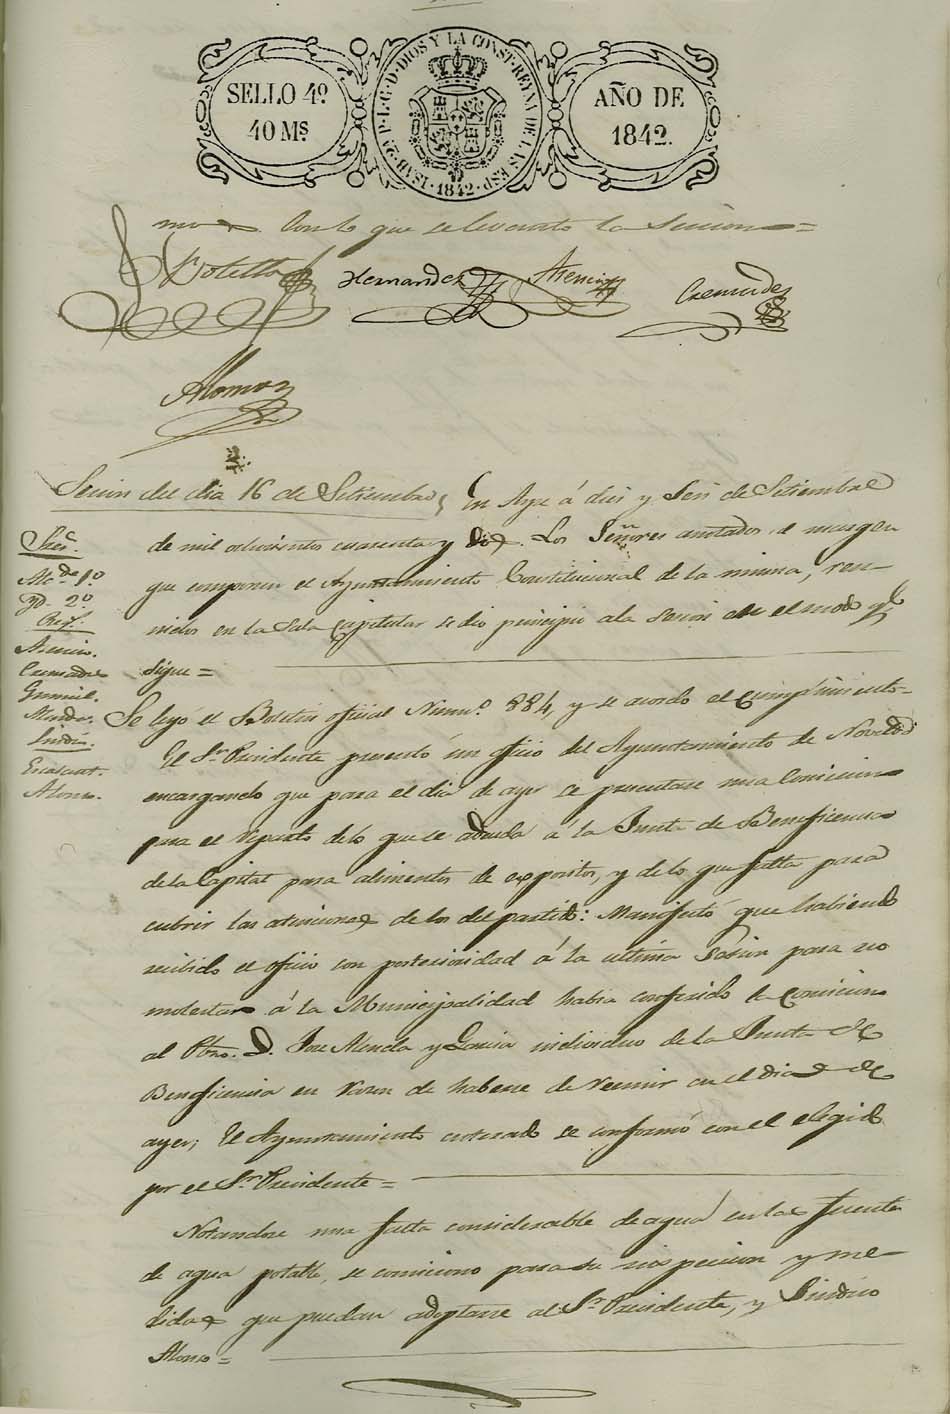 SELLO 4º
40 Mˢ
ISAB. 2ª P. L. G. D. DIOS Y LA CONST. REYNA DE LAS ESP.
1842
AÑO DE
1842.
Con lo que se levanto la Sesion =
Botella Hernandez Asencio Cremades
Alonso
Sesion del dia 16 de Setiembre, En Aspe á diez y Seis de Setiembre
de mil ochocientos cuarenta y dos. Los Señores anotados a margen
que componen el Ayuntamiento Constitucional de la misma, reu-
nidos en la Sala Capitular se dio principio ala sesion en el modo qᵉ
sigue =
Sres.
Alcᵈᵉ 1º
Yd. 2º
Regˢ.
Asencio.
Cremades
Mendez.
Sindic.
Alonso.
Se leyó el Boletin oficial Numº. 884, y se acordo el cumplimiento.
El Sʳ Presidente presentó un oficio del Ayuntamiento de Novelda
encargando que para el dia de ayer se presentase una Comicion
para el reparto delo que se adeuda á la Junta de Beneficencia
dela Capital para alimentos de expositos, y delo que falta para
cubrir las atenciones de los del partido: Manifestó que habiendo
recibido el oficio con posterioridad á la ultima Sesion para no
molestar á la Municipalidad habia conferido la comicion
al Pbro. D. Jose Alenda y Garcia individuo de la Junta de
Beneficencia en razon de haberse de reunir en el dia de
ayer; El Ayuntamiento enterado se conformó con el elegido
por el Sʳ Presidente =
Notandose una falta considerable de agua en las fuentes
de agua potable, se comiciono para su inspeccion y me-
didas que puedan adoptarse al Sʳ Presidente, y Sindico
Alonso =